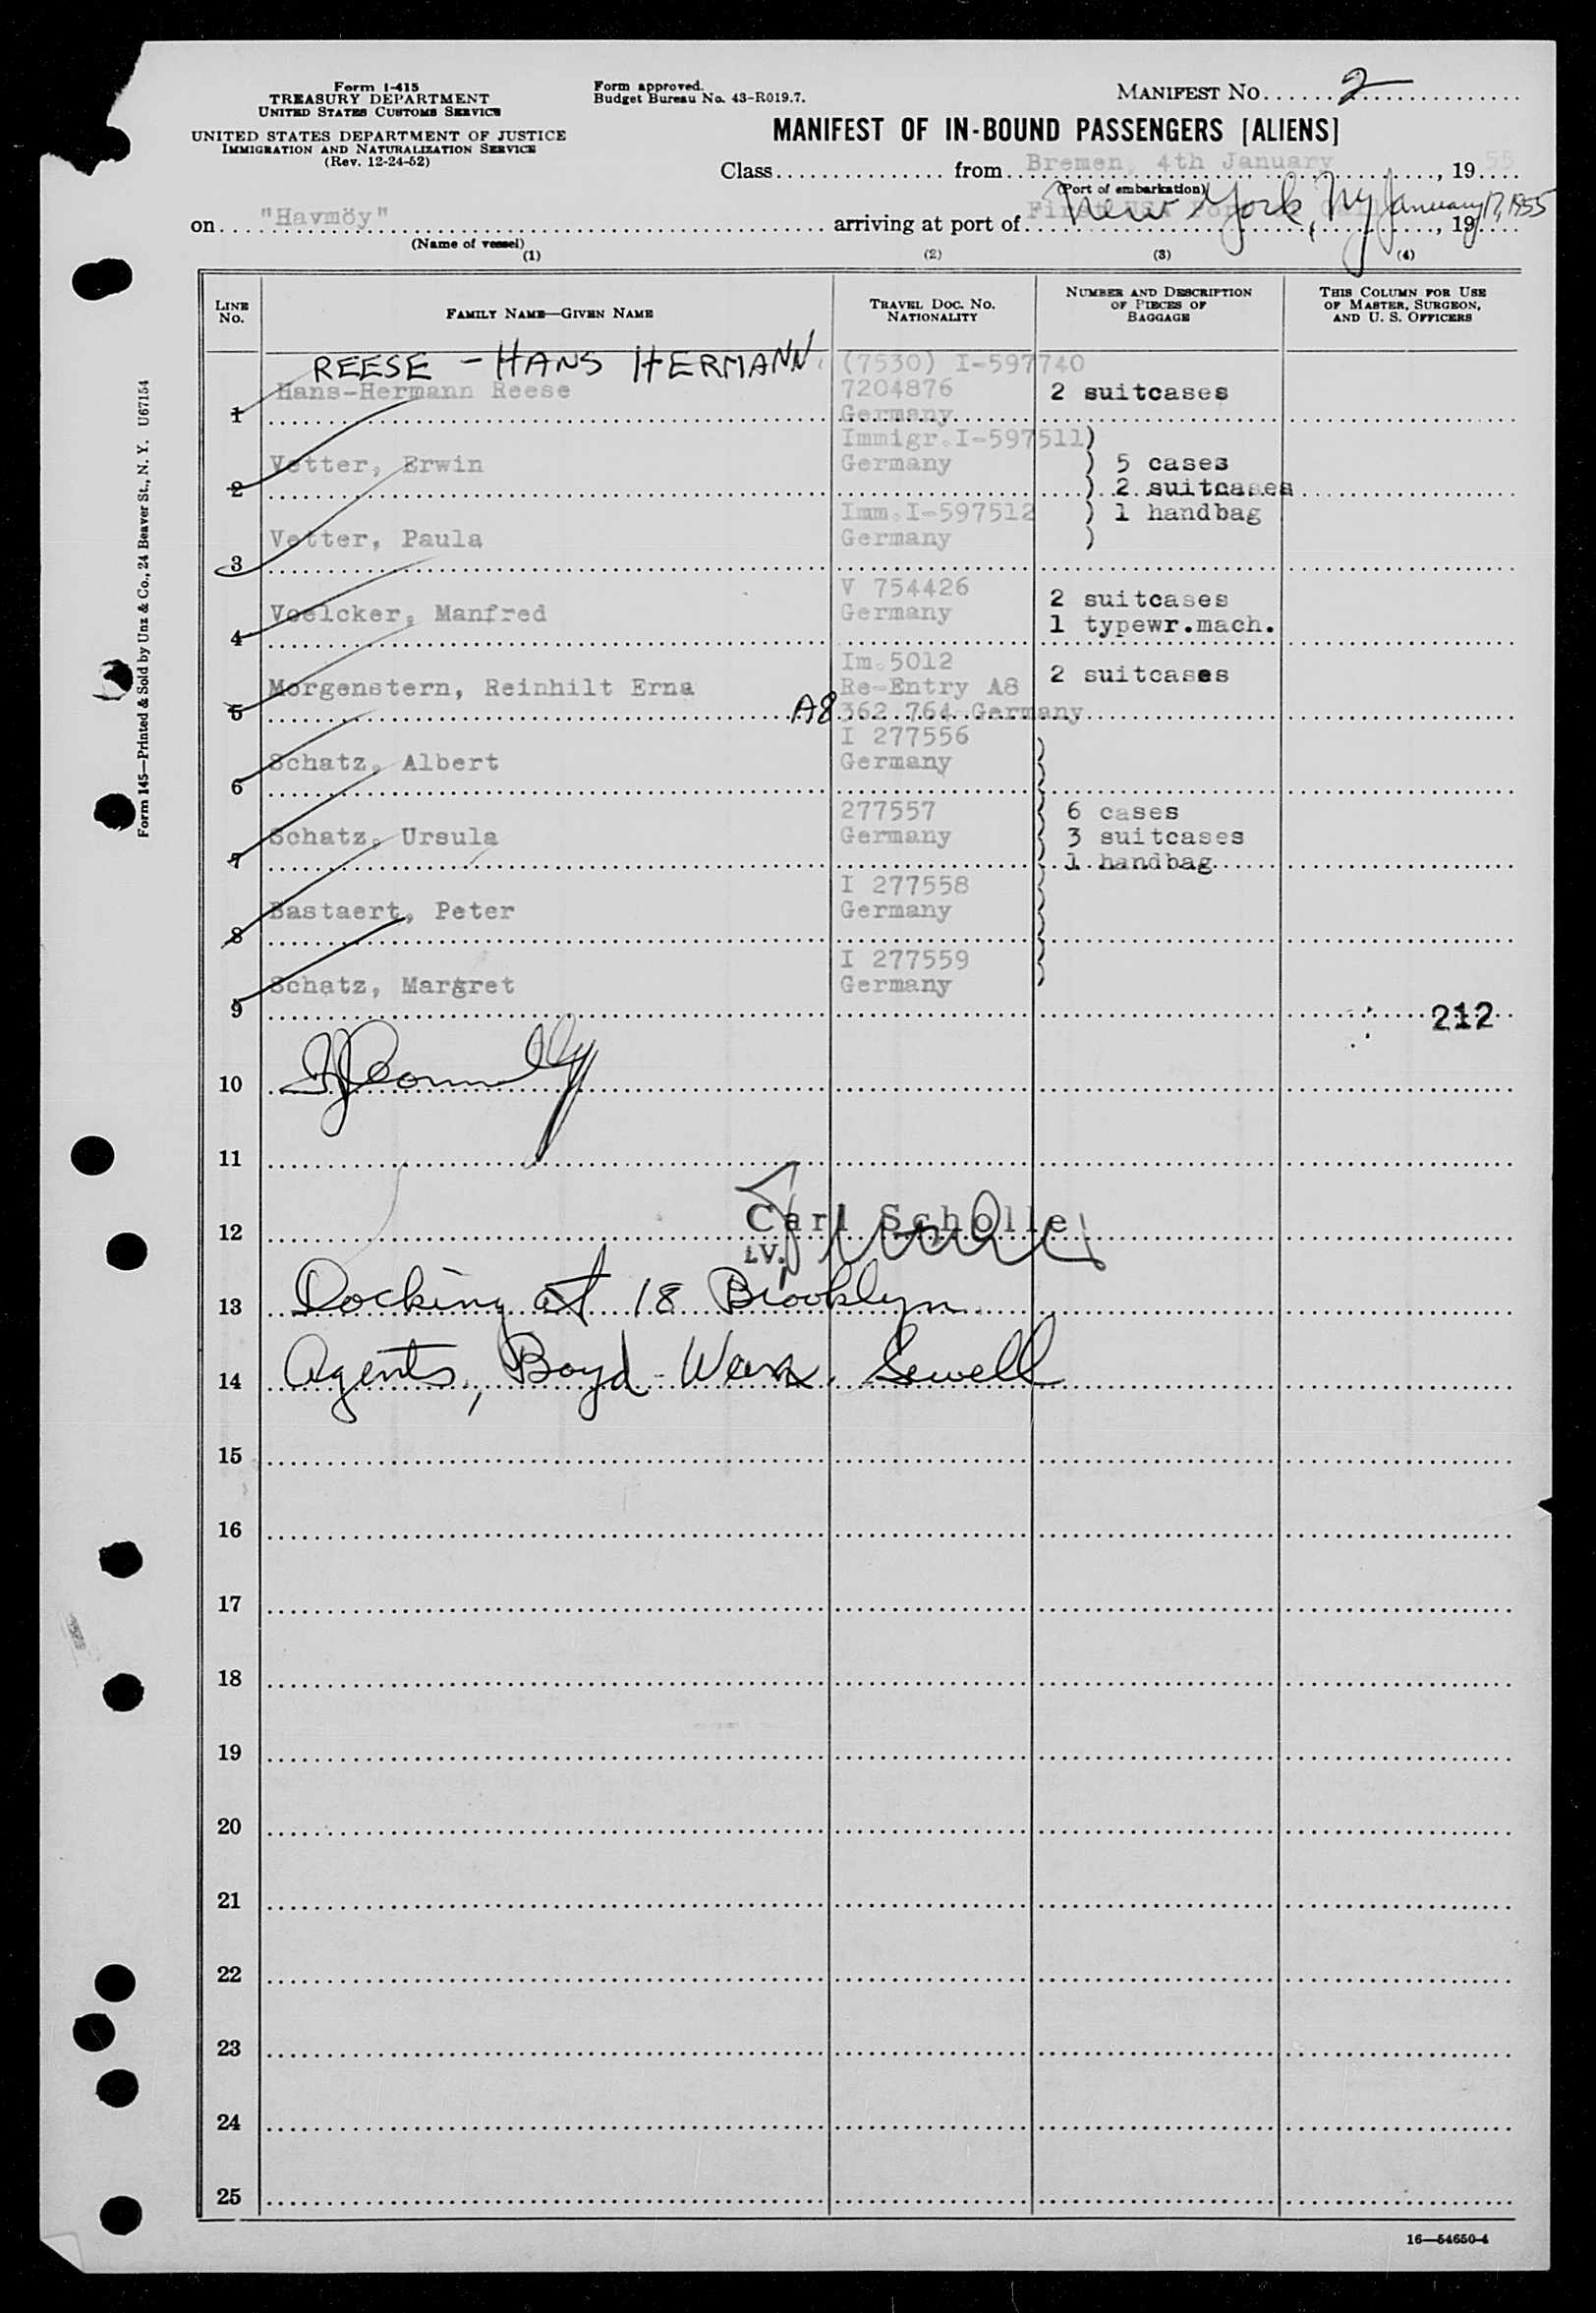 Form I-415
TREASURY DEPARTMENT
UNITED STATES CUSTOMS SERVICE
UNITED STATES DEPARTMENT OF JUSTICE
IMMIGRATION AND NATURALIZATION SERVICE
(Rev. 12-24-52)
Form approved.
Budget Bureau No. 43-R019.7.
MANIFEST NO. 2
MANIFEST OF IN-BOUND PASSENGERS [ALIENS]
Class from Bremen, 4th January, 1955
(Port of embarkation)
on "Havmöy" arriving at port of First USA New York, NY January 17, 1955, 19
(Name of vessel)
(1) (2) (3) (4)
LINE NO.
FAMILY NAME—GIVEN NAME
TRAVEL DOC. NO. NATIONALITY
NUMBER AND DESCRIPTION OF PIECES OF BAGGAGE
THIS COLUMN FOR USE OF MASTER, SURGEON, AND U. S. OFFICERS
REESE - HANS HERMANN (7530) I-597740
1 Hans-Hermann Reese 7204876 2 suitcases
Germany
Immigr.I-597511)
2 Vetter, Erwin Germany ) 5 cases
) 2 suitcases
Imm.I-597512 ) 1 handbag
3 Vetter, Paula Germany )
V 754426 2 suitcases
4 Voelcker, Manfred Germany 1 typewr.mach.
Im.5012
5 Morgenstern, Reinhilt Erna Re-Entry A8 2 suitcases
A8 362 764 Germany
I 277556
6 Schatz, Albert Germany
277557 6 cases
7 Schatz, Ursula Germany 3 suitcases
1 handbag
I 277558
8 Bastaert, Peter Germany
I 277559
9 Schatz, Margret Germany
212
10
11
12 Carl Scholle
i.V.
13 Docking at 18 Brooklyn
14 Agents, Boyd - Sewell
15
16
17
18
19
20
21
22
23
24
25
16—54650-4
Form 145—Printed & Sold by Unz & Co., 24 Beaver St., N. Y. U67154